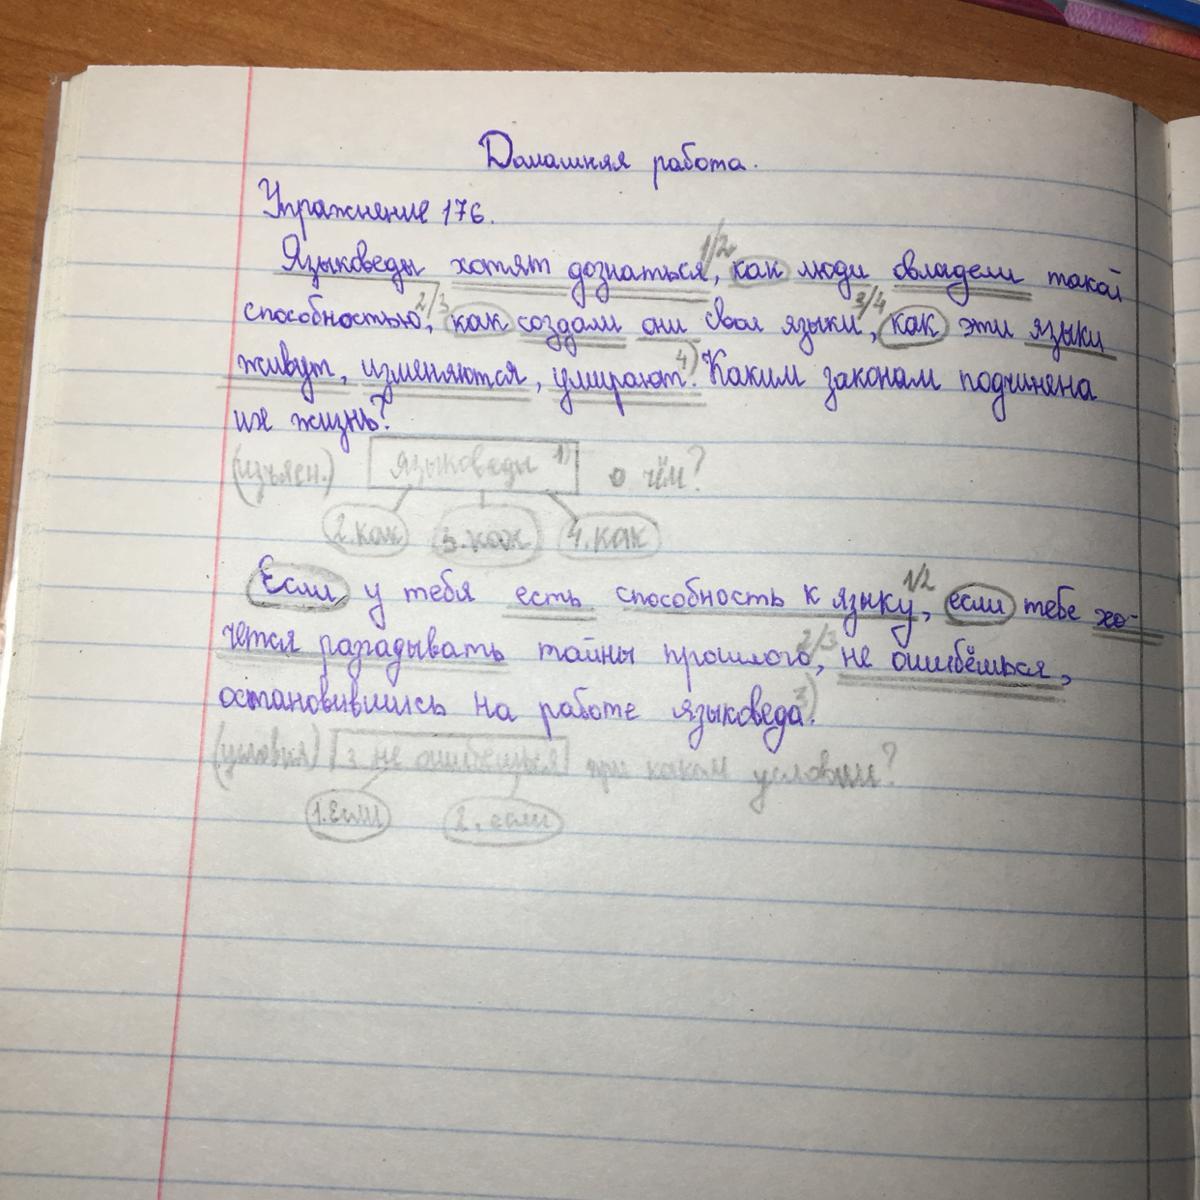 Домашняя работа.
Упражнение 176.
Языковеды хотят дознаться, 1/2 как люди овладели такой
способностью, 2/3 как создали они свои языки, 3/4 как эти языки
живут, изменяются, умирают 4). Каким законам подчинена
их жизнь?
(изъясн.) языковеды 1) о чём?
2. как 3. как 4. как
Если у тебя есть способность к языку, 1/2 если тебе хо-
чется разгадывать тайны прошлого, 2/3 не ошибёшься,
остановившись на работе языковеда 3).
(условия) 3 не ошибёшься при каком условии?
1. Если 2. если